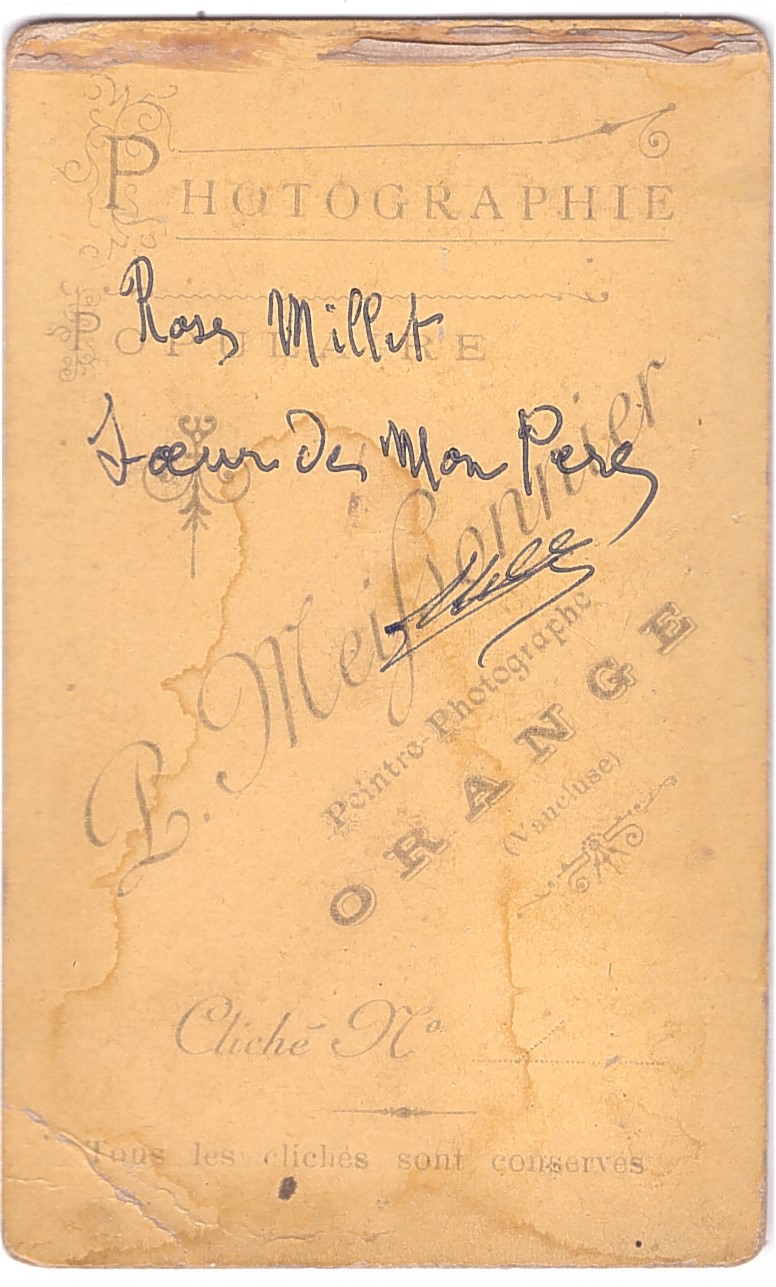 PHOTOGRAPHIE
Rose Millet
POPULAIRE
Sœur De Mon Pere
P. Meissonnier
Peintre-Photographe
ORANGE
(Vaucluse)
Cliché Nº
Tous les clichés sont conservés